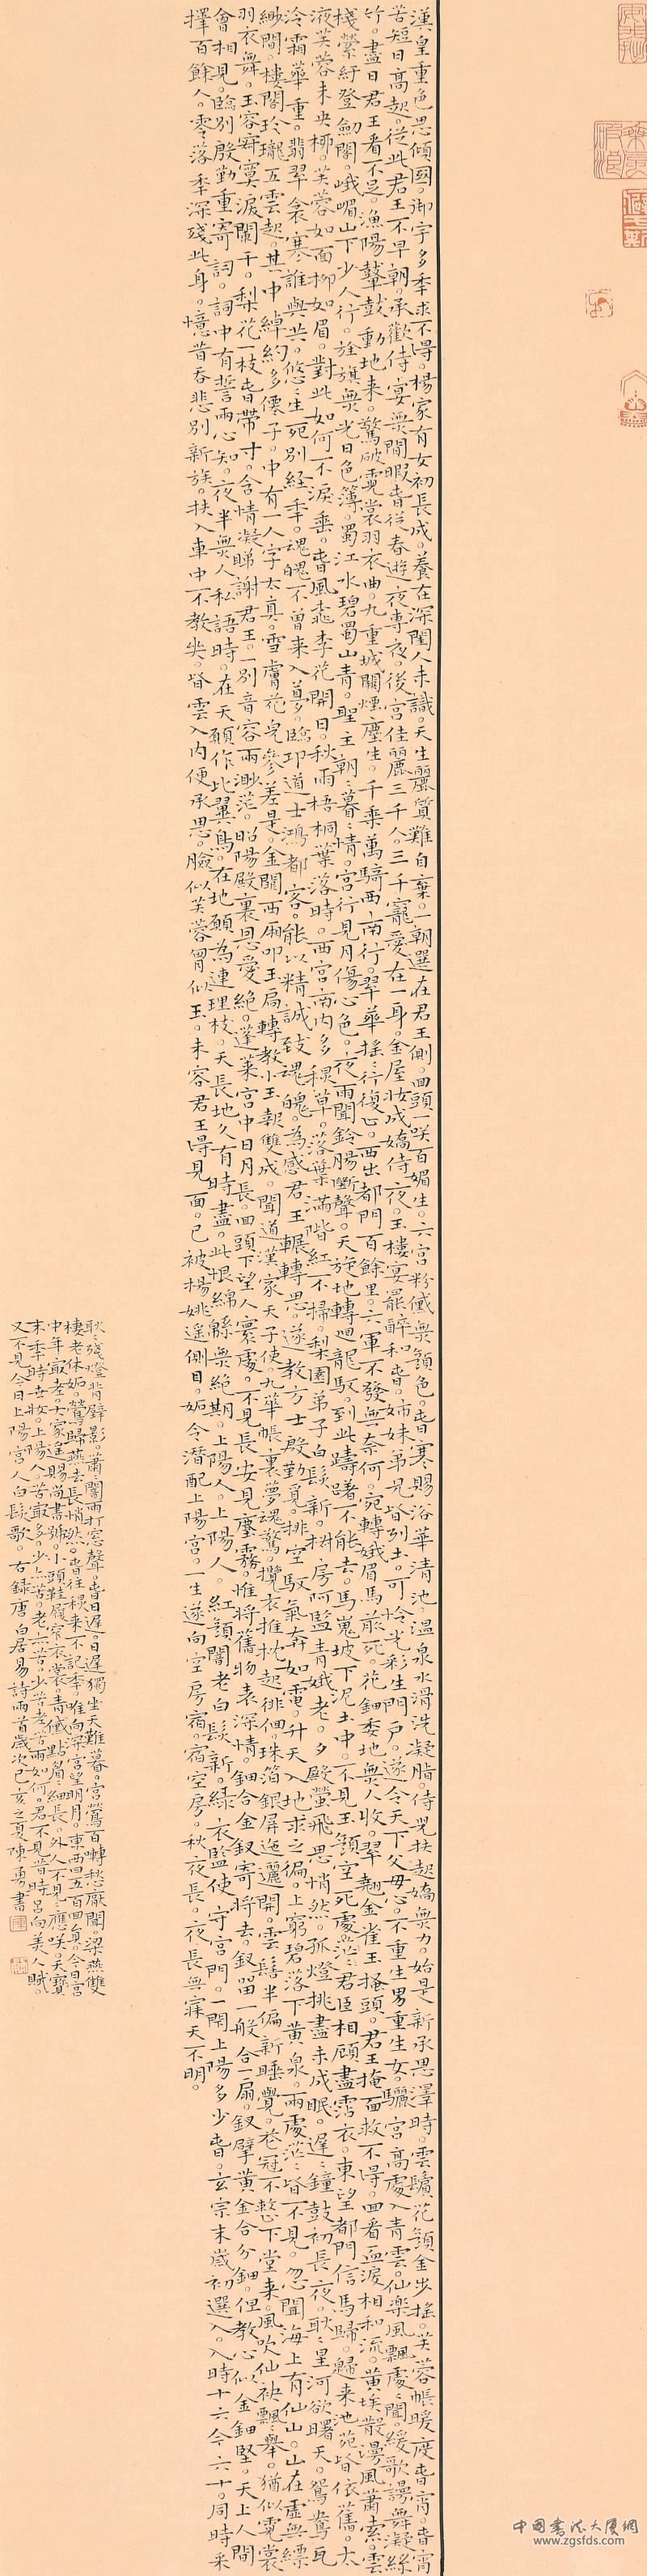 漢皇重色思傾國。御宇多年求不得。楊家有女初長成。養在深閨人未識。天生麗質難自棄。一朝選在君王側。回頭一笑百媚生。六宮粉黛無顏色。春寒賜浴華清池。溫泉水滑洗凝脂。侍兒扶起嬌無力。始是新承恩澤時。雲鬢花顏金步搖。芙蓉帳暖度春宵。春宵
苦短日高起。從此君王不早朝。承歡侍宴無閒暇。春從春遊夜專夜。後宮佳麗三千人。三千寵愛在一身。金屋妝成嬌侍夜。玉樓宴罷醉和春。姊妹弟兄皆列土。可怜光彩生門戶。遂令天下父母心。不重生男重生女。驪宮高處入青雲。仙樂風飄處處聞。緩歌謾舞凝絲
竹。盡日君王看不足。漁陽鼙鼓動地来。驚破霓裳羽衣曲。九重城闕煙塵生。千乘萬騎西南行。翠華搖搖行復止。西出都門百餘里。六軍不發無奈何。宛轉娥眉馬前死。花鈿委地無人收。翠翹金雀玉搔頭。君王掩面救不得。回看血淚相和流。黃埃散漫風蕭索。雲
棧縈紆登劍閣。峨嵋山下少人行。旌旗無光日色薄。蜀江水碧蜀山青。聖主朝朝暮暮情。宮行見月傷心色。夜雨聞鈴腸斷聲。天旋地轉迴龍馭。到此躊躇不能去。馬嵬坡下泥土中。不見玉顏空死處。君臣相顧盡霑衣。東望都門信馬歸。歸来池苑皆依舊。太
液芙蓉未央柳。芙蓉如面柳如眉。對此如何不淚垂。春風桃李花開日。秋雨梧桐葉落時。西宮南內多秋草。落葉滿階紅不掃。梨園弟子白髮新。椒房阿監青娥老。夕殿螢飛思悄然。孤燈挑盡未成眠。遲遲鐘鼓初長夜。耿耿星河欲曙天。鴛鴦瓦
冷霜華重。翡翠衾寒誰與共。悠悠生死別經年。魂魄不曾来入夢。臨邛道士鴻都客。能以精誠致魂魄。為感君王輾轉思。遂教方士殷勤覓。排空馭氣奔如電。升天入地求之徧。上窮碧落下黃泉。兩處茫茫皆不見。忽聞海上有仙山。山在虛無縹
緲間。樓閣玲瓏五雲起。其中綽約多僊子。中有一人字太真。雪膚花皃參差是。金闕西廂叩玉扃。轉教小玉報雙成。聞道漢家天子使。九華帳裏夢魂驚。攬衣推枕起徘徊。珠箔銀屏迤邐開。雲髻半偏新睡覺。花冠不整下堂来。風吹仙袂飄飄舉。猶似霓裳
羽衣舞。玉容寂寞淚闌干。梨花一枝春帶寸。含情凝睇謝君王。一別音容兩渺茫。昭陽殿裏恩愛絕。蓬萊宮中日月長。回頭下望人寰處。不見長安見塵霧。惟將舊物表深情。鈿合金釵寄將去。釵留一般合一扇。釵擘黃金合分鈿。但教心似金鈿堅。天上人間
會相見。臨別殷勤重寄詞。詞中有誓兩心知。夜半無人私語時。在天願作比翼鳥。在地願為連理枝。天長地久有時盡。此恨綿綿無絕期。上陽人。上陽人。紅顏闇老白髮新。綠衣監使守宮門。一閉上陽多少春。玄宗末歲初選入。入時十六今六十。同時采
擇百餘人。零落年深殘此身。憶昔吞悲別新族。扶入車中不教哭。皆雲入內便承恩。臉似芙蓉胷似玉。未容君王得見面。已被楊妃遙側目。妬令潛配上陽宮。一生遂向空房宿。宿空房。秋夜長。夜長無寐天不明。
耿耿殘燈背壁影。蕭蕭闇雨打窓聲。春日遲。日遲獨坐天難暮。宮鶯百囀愁厭聞。梁燕雙
棲老休妬。鶯歸燕去長悄然。春往秋来不記年。唯向深宮望明月。東西四五百回圓。今日宮
中年最老。大家遙賜尚書號。小頭鞋履窄衣裳。青黛點眉眉細長。外人不見見應笑。天寶
末年時世妝。上陽人。苦最多。少亦苦。老亦苦。少苦老苦兩如何。君不見昔時呂向美人賦。
又不見今日上陽宮人白髮歌。右錄唐白居易詩兩首。歲次己亥之夏陳勇書
中國書法大厦網
www.zgsfds.com